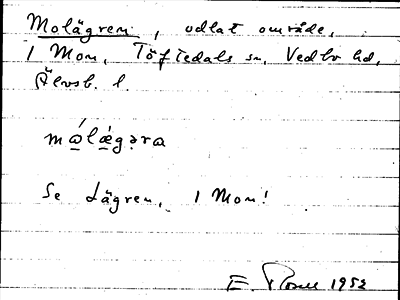 Molägren, odlat område,
1 Mon, Töftedals sn, Vedbo hd,
Älvsb. l.
mɷ́læ̀gəra
Se Lägren, 1 Mon!
E. 1952